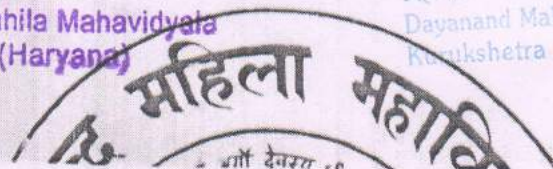 hila Mahavidyala
(Haryana)
Dayanand Mal
Kurukshetra
महिला महावि
भर्गो देवस्य